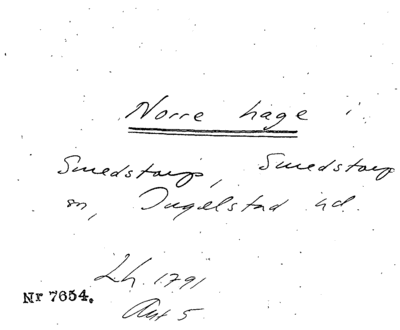 Norre hage i
Smedstorp, Smedstorp
sn, Ingelstad hd.
Lh. 1791
Akt 5
Nr 7654.